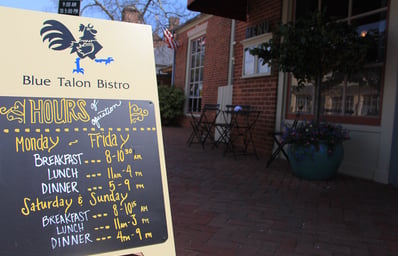 9:00 AM
to 5:00 PM
Blue Talon Bistro
HOURS of operation
Monday ~ Friday
BREAKFAST --- 8-10:30 AM
LUNCH --- 11am-4 PM
DINNER --- 5-9 PM
Saturday & Sunday
BREAKFAST --- 8-10:15 AM
LUNCH --- 11am-3 PM
DINNER --- 4pm-9 PM